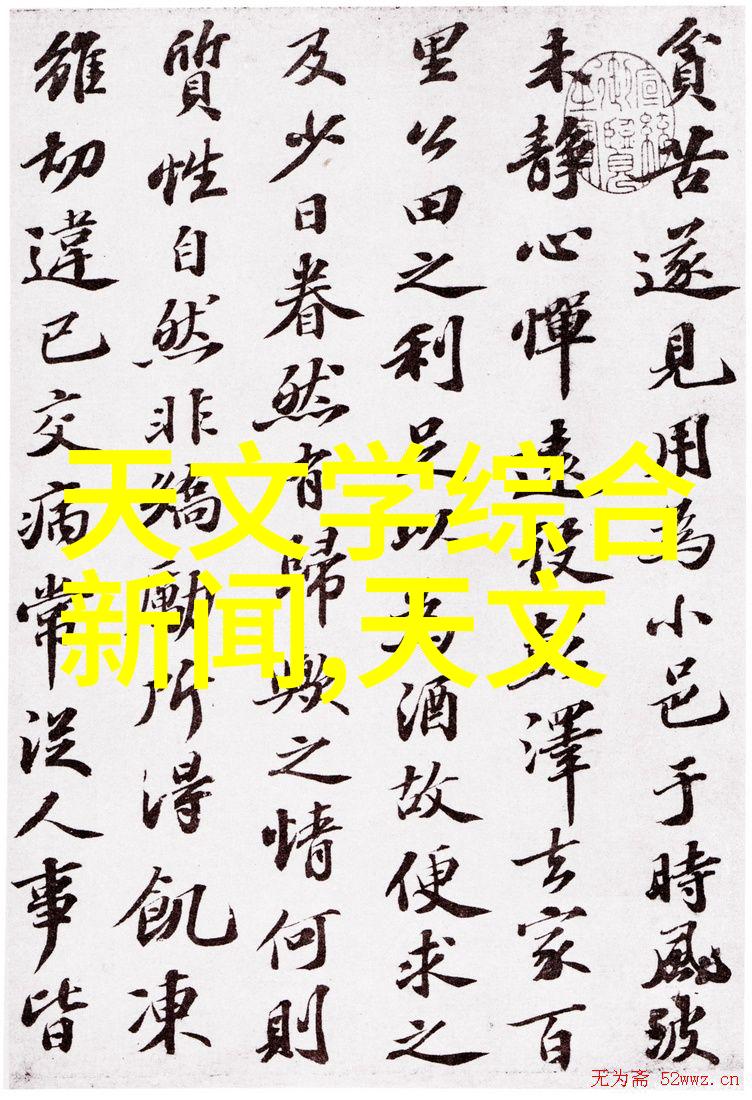 貧苦遂見用為小邑于時風波
未靜心憚遠役彭澤去家百
里公田之利足以為酒故便求之
及少日眷然有歸歟之情何則
質性自然非矯勵所得飢凍
雖切違已交病常從人事皆
天文学综合
新闻,天文
无为斋 52wwz.cn